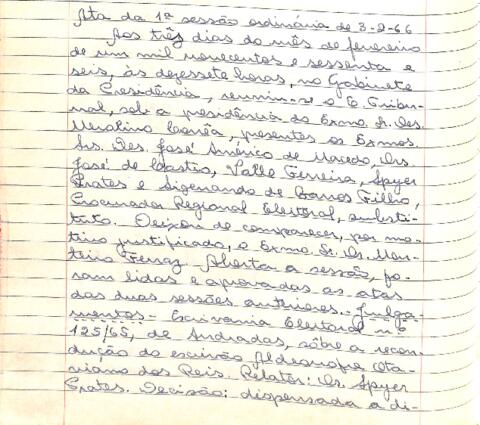 Ata da 1ª sessão ordinária de 3-2-66
Aos três dias do mês de fevereiro
de um mil novecentos e sessenta e
seis, às dezessete horas, no Gabinete
da Presidência, reuniu-se o E. Tribu-
nal, sob a presidência do Exmo. Sr. Des.
Merolino Corrêa, presentes os Exmos.
Srs. Des. José Américo de Macedo, Drs.
José de Castro, Valle Ferreira, Spyer
Prates e Sizenando de Barros Filho,
Procurador Regional Eleitoral, substi-
tuto. Deixou de comparecer, por mo-
tivo justificado, o Exmo. Sr. Dr. Mon-
teiro Ferraz. Aberta a sessão, fo-
ram lidas e aprovadas as atas
das duas sessões anteriores. - Julga-
mentos - Escrivania Eleitoral nº
125/65, de Andradas, sôbre a recon-
dução do escrivão Ota-
viano dos Reis. Relator: Dr. Spyer
Prates. Decisão: dispensada a di-